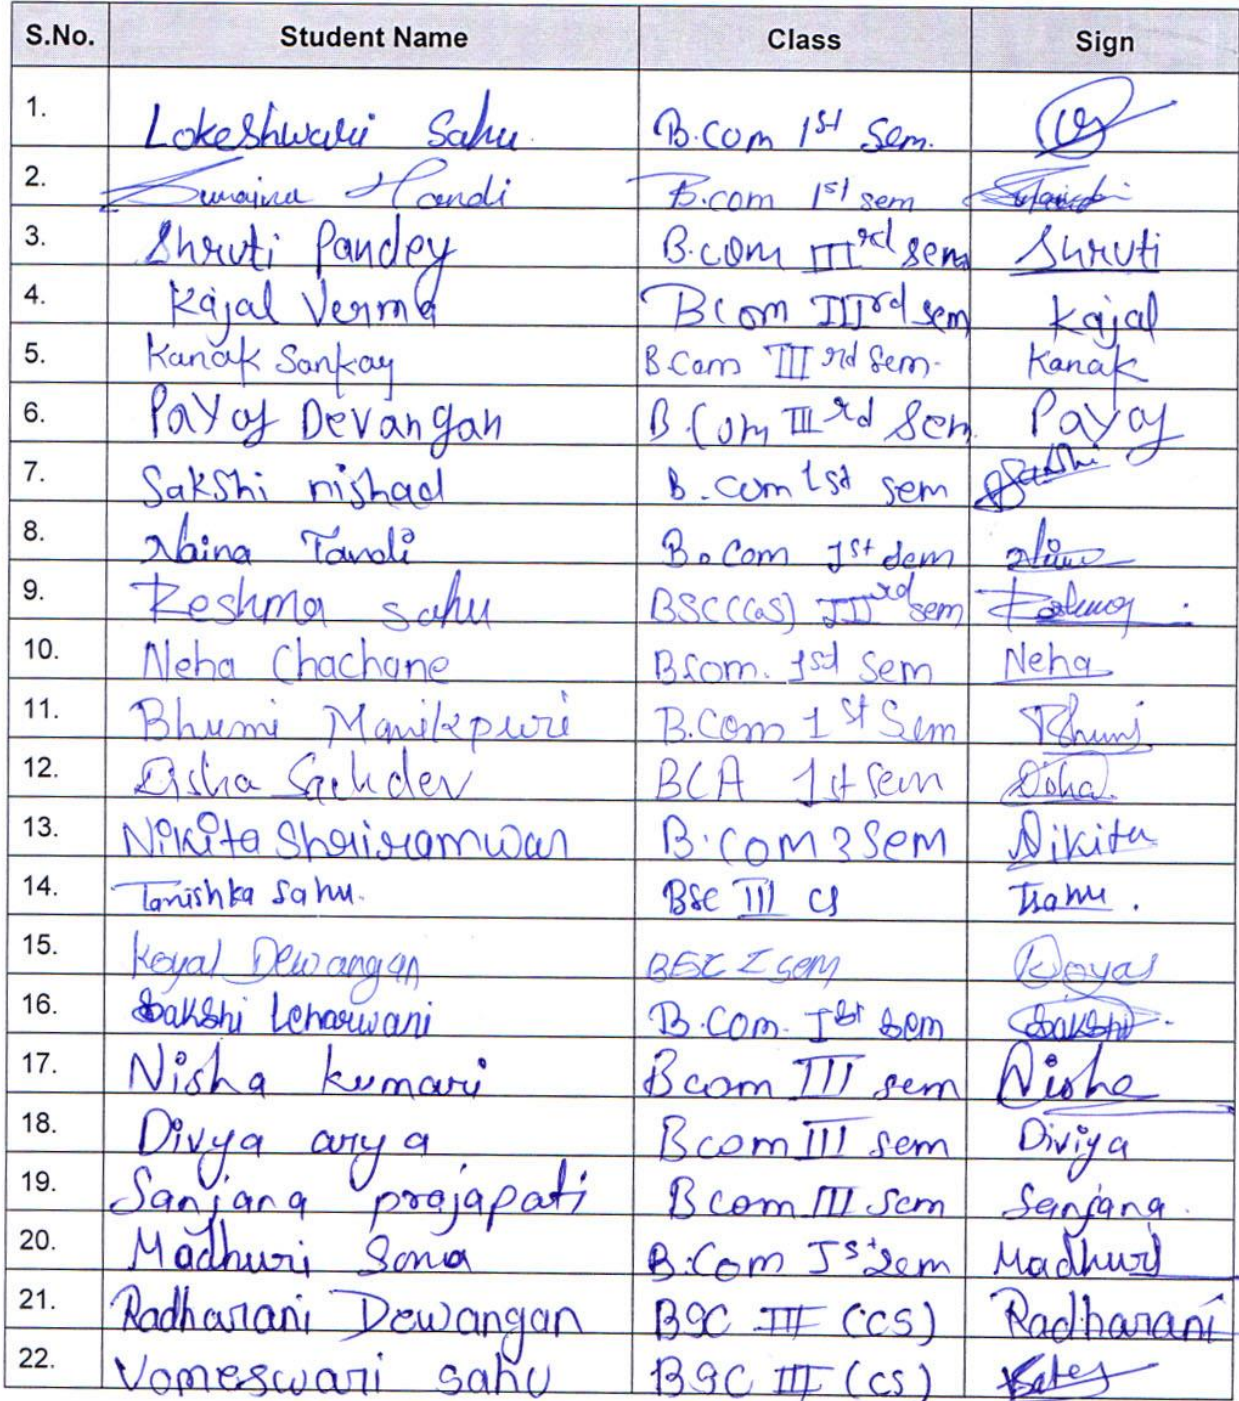 S.No. Student Name Class Sign
1. Lokeshwari Sahu. B.Com 1st Sem.
2. Sunaina Handi B.com 1st sem
3. Shruti Pandey B.com IIIrd sem Shruti
4. Kajal Verma BCom IIIrd sem Kajal
5. Kanak Sankay B.Com IIIrd Sem. Kanak
6. Payal Devangan B.Com IIIrd Sem Payal
7. Sakshi nishad B.com 1st sem Sakshi
8. Naina Tandi B.Com 1st sem
9. Reshma sahu BSC(CS) IIIrd sem Reshma
10. Neha Chachane Bcom. 1st Sem Neha
11. Bhumi Manikpuri B.Com 1st Sem Bhumi
12. Disha Sachdev BCA 1st Sem Disha
13. Nikita Shriramwar B.Com 3 Sem Nikita
14. Tanishka Sahu. BSc III CS Tsahu.
15. Koyal Dewangan BSC I sem Koyal
16. Sakshi Lcharwani B.Com. Ist Sem Sakshi
17. Nisha kumari Bcom III sem Nisha
18. Divya arya Bcom III sem Diviya
19. Sanjana prajapati Bcom III Sem Sanjana.
20. Madhuri Sona B.Com Ist Sem Madhuri
21. Radharani Dewangan BSC III (CS) Radharani
22. Vomeswari sahu BSC III (CS)